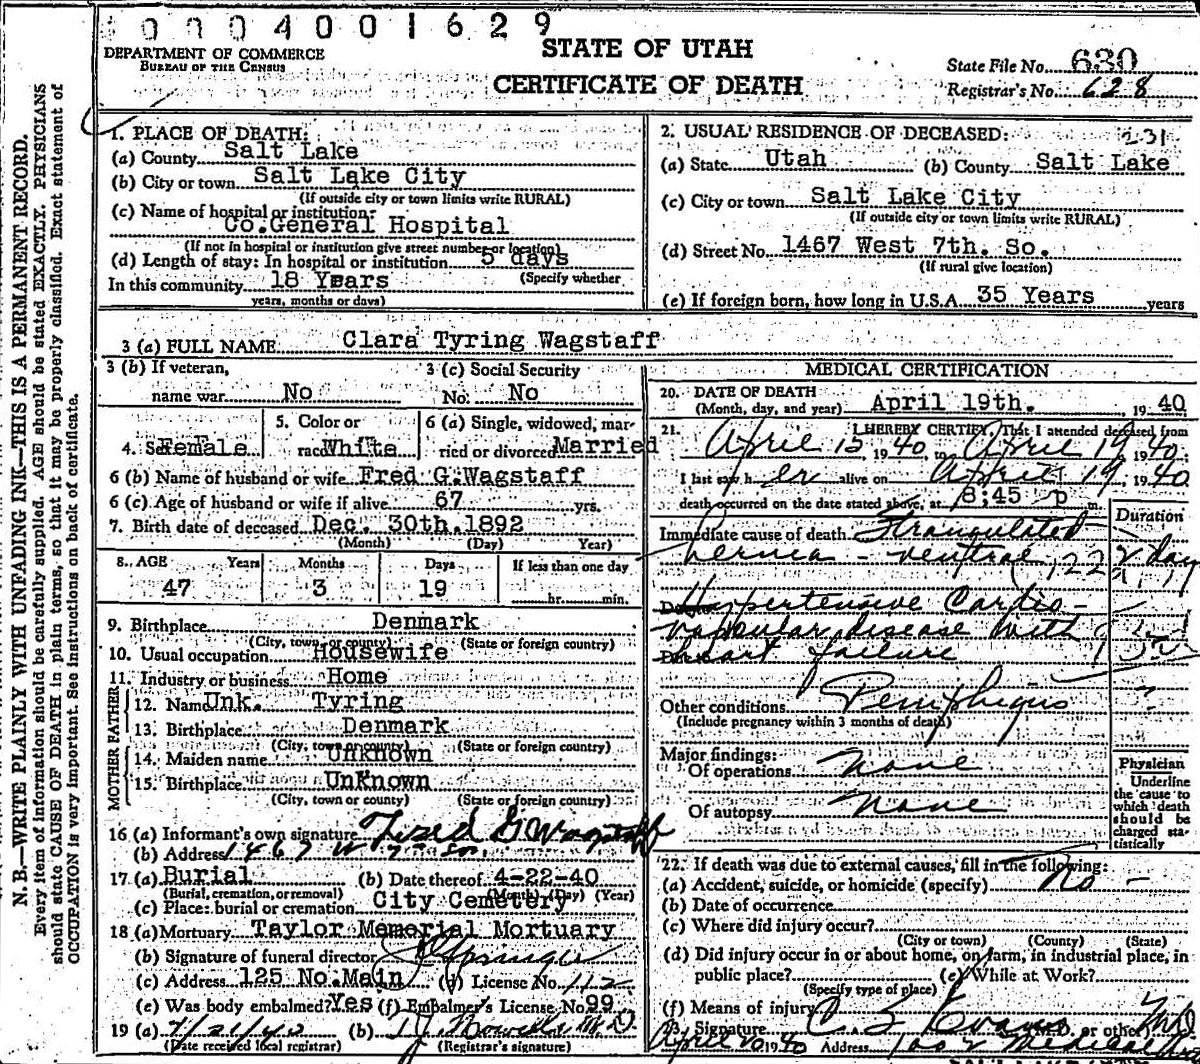 0004001629
DEPARTMENT OF COMMERCE
BUREAU OF THE CENSUS
STATE OF UTAH
CERTIFICATE OF DEATH
State File No. 630
Registrar's No. 628
1. PLACE OF DEATH:
(a) County Salt Lake
(b) City or town Salt Lake City
(If outside city or town limits write RURAL)
(c) Name of hospital or institution:
Co.General Hospital
(If not in hospital or institution give street number or location)
(d) Length of stay: In hospital or institution 5 days
(Specify whether
In this community 18 Years
years, months or days)
2. USUAL RESIDENCE OF DECEASED: 231
(a) State Utah (b) County Salt Lake
(c) City or town Salt Lake City
(If outside city or town limits write RURAL)
(d) Street No. 1467 West 7th. So.
(If rural give location)
(e) If foreign born, how long in U.S.A 35 Years years
3 (a) FULL NAME Clara Tyring Wagstaff
3 (b) If veteran,
name war No
3 (c) Social Security
No. No
4. Sex Female
5. Color or
race White
6 (a) Single, widowed, mar-
ried or divorced Married
6 (b) Name of husband or wife Fred G.Wagstaff
6 (c) Age of husband or wife if alive 67 yrs.
7. Birth date of deceased Dec. 30th.1892
(Month) (Day) Year)
8. AGE Years Months Days If less than one day
47 3 19 hr. min.
9. Birthplace Denmark
(City, town or county) (State or foreign country)
10. Usual occupation Housewife
11. Industry or business Home
FATHER
12. Name Unk. Tyring
13. Birthplace Denmark
(City, town or county) (State or foreign country)
MOTHER
14. Maiden name Unknown
15. Birthplace Unknown
(City, town or county) (State or foreign country)
16 (a) Informant's own signature Fred G Wagstaff
(b) Address 1467 W 7th So.
17. (a) Burial (b) Date thereof 4-22-40
(Burial, cremation, or removal) (Month) (Day) (Year)
(c) Place: burial or cremation City Cemetery
18 (a) Mortuary Taylor Memorial Mortuary
(b) Signature of funeral director
(c) Address 125 No.Main (d) License No. 112
(e) Was body embalmed? Yes (f) Embalmer's License No 99
19 (a) (b) M.D.
(Date received local registrar) (Registrar's signature)
MEDICAL CERTIFICATION
20. DATE OF DEATH
(Month, day, and year) April 19th. 1940
21. I HEREBY CERTIFY, That I attended deceased from
April 15, 1940, to April 19, 1940.
I last saw her alive on April 19, 1940
death occurred on the date stated above, at 8:45 p m.
Duration
Immediate cause of death Strangulated
hernia - ventral 2 days
Due to Hypertensive Cardio-
vascular disease with
Due to heart failure
Other conditions Pemphigus ?
(Include pregnancy within 3 months of death)
Major findings:
Of operations none
Of autopsy none
Physician
Underline
the cause to
which death
should be
charged sta-
tistically
22. If death was due to external causes, fill in the following:
(a) Accident, suicide, or homicide (specify) No -
(b) Date of occurrence
(c) Where did injury occur?
(City or town) (County) (State)
(d) Did injury occur in or about home, on farm, in industrial place, in
public place? (e) While at Work?
(Specify type of place)
(f) Means of injury
23. Signature C S Evans M.D. or other MD
April 20 1940 Address
N. B.—WRITE PLAINLY WITH UNFADING INK—THIS IS A PERMANENT RECORD.
Every item of information should be carefully supplied. AGE should be stated EXACTLY. PHYSICIANS
should state CAUSE OF DEATH in plain terms, so that it may be properly classified. Exact statement of
OCCUPATION is very important. See instructions on back of certificate.